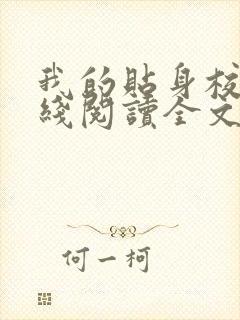 我的貼身校
綫閱讀全文
何一柯